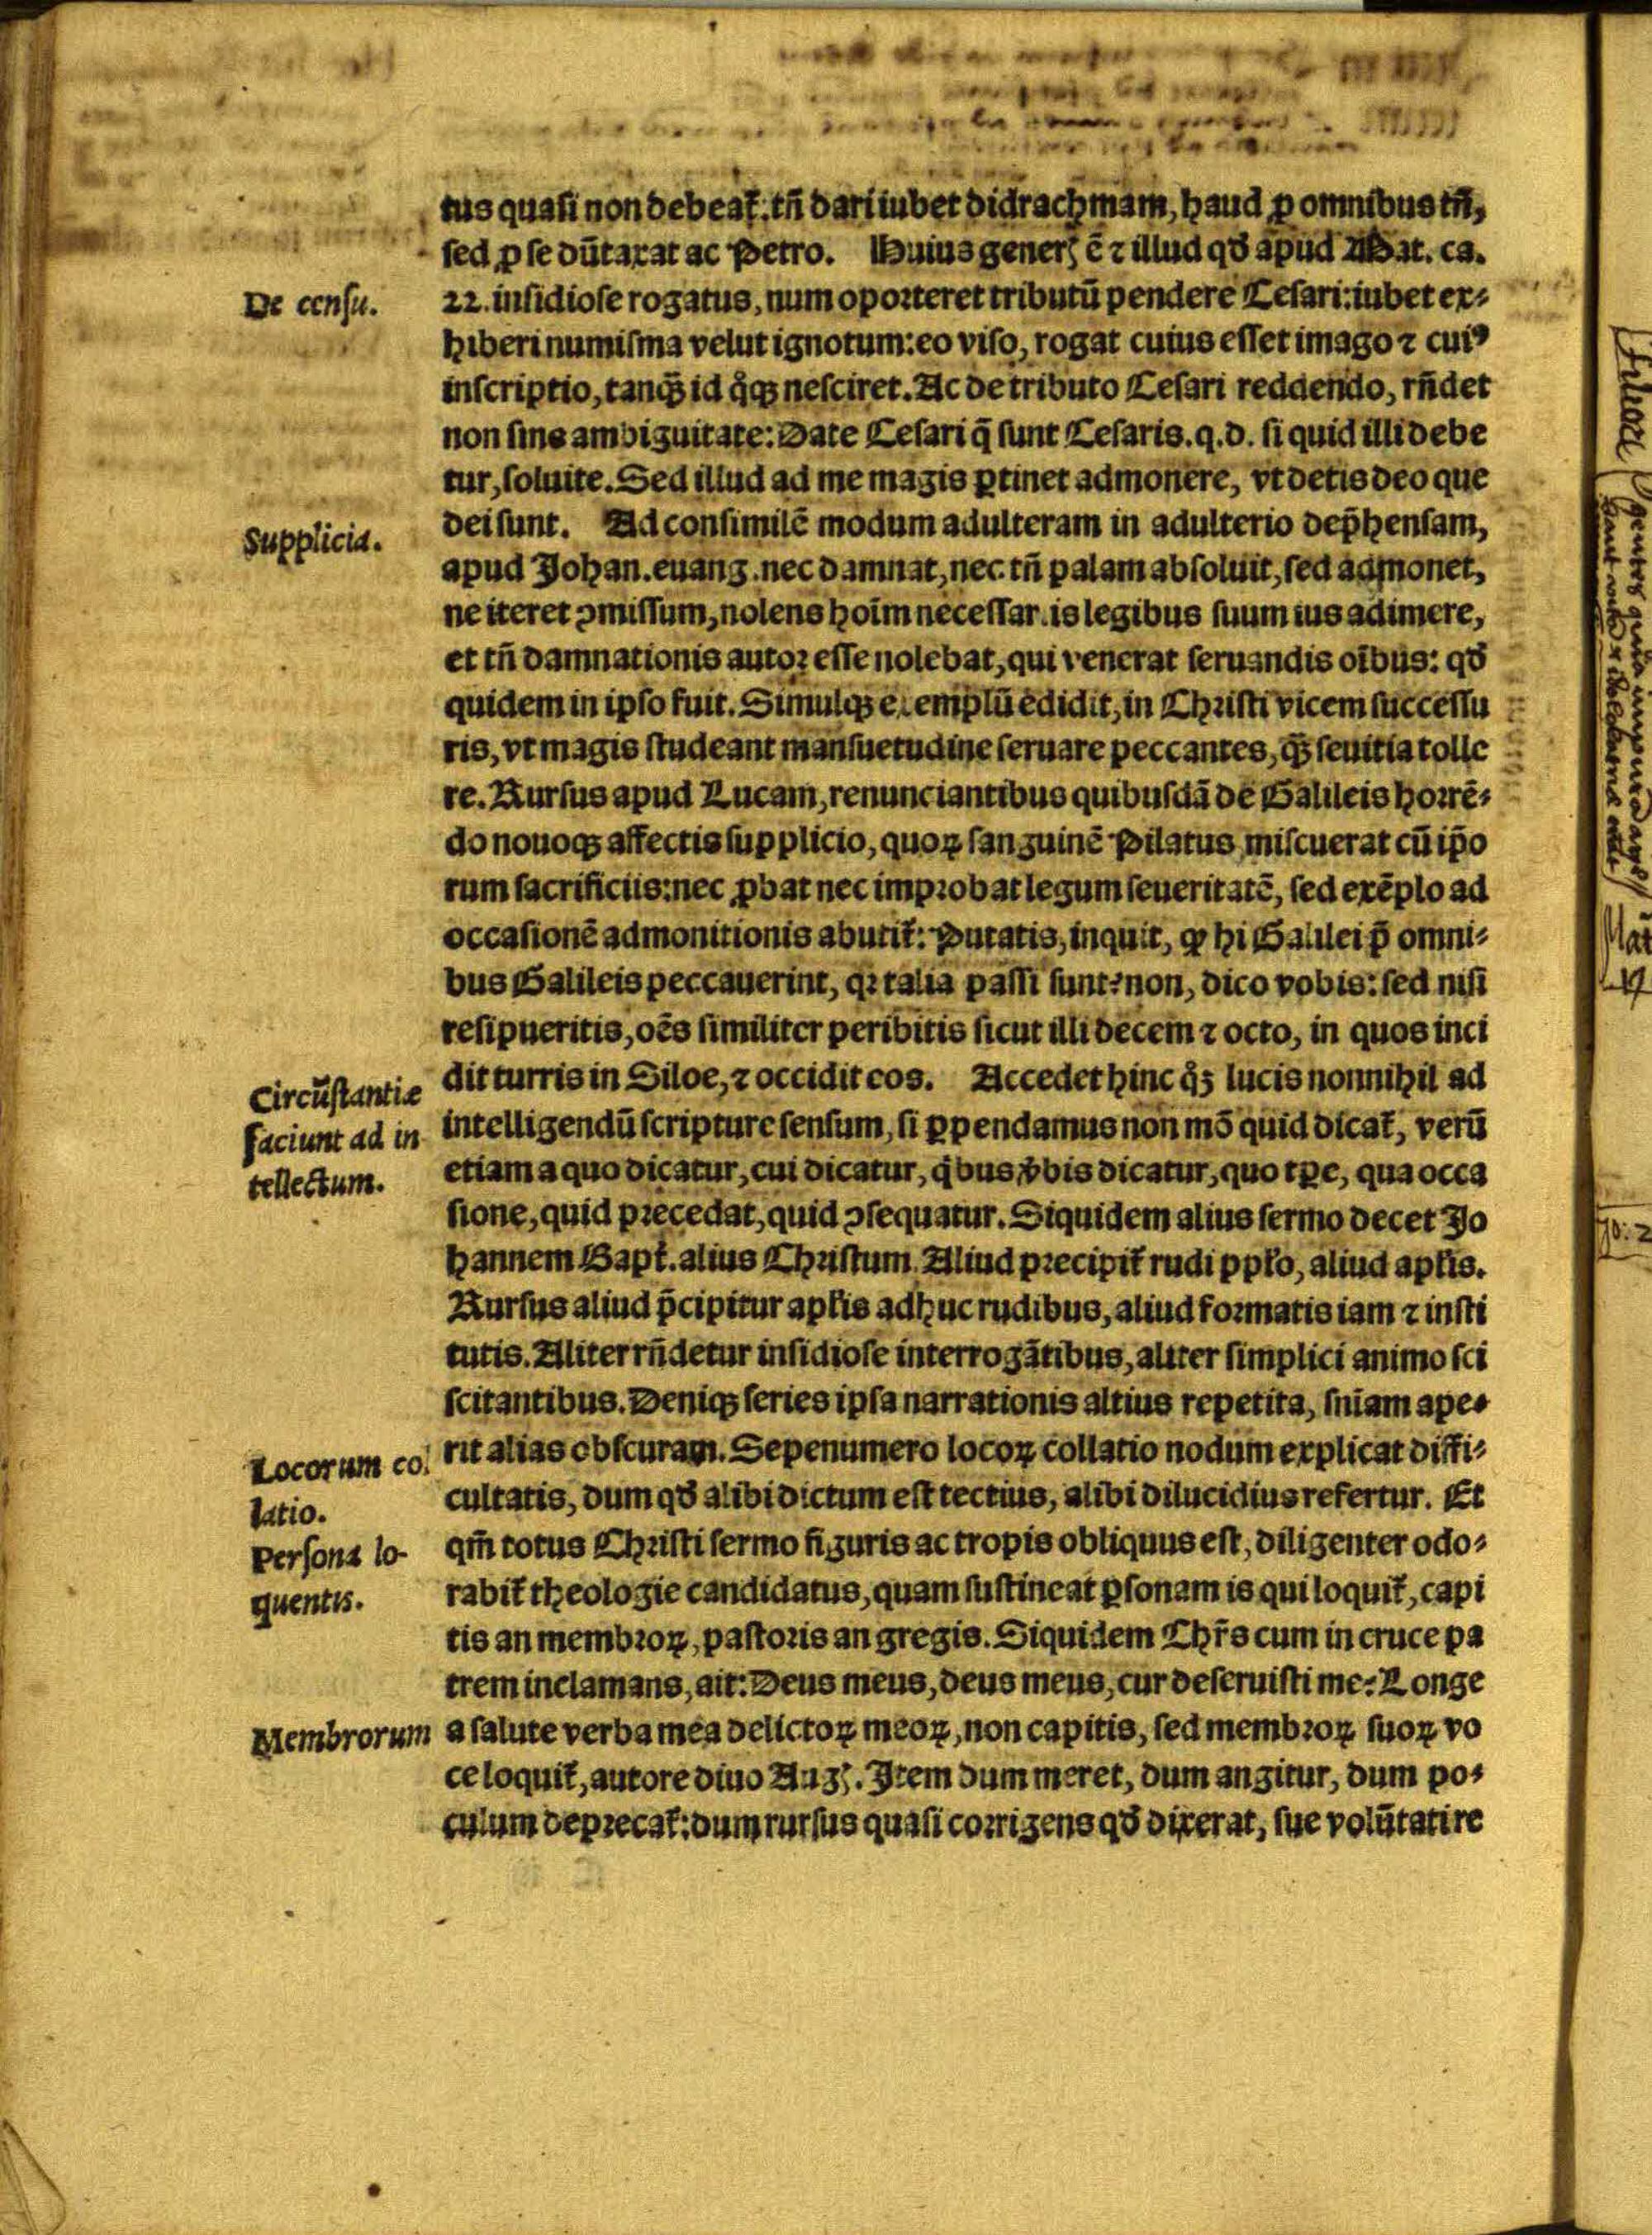 tus quasi non debeat᷑. tñ dari iubet didrachmam, haud ꝓ omnibus tñ,
sed ꝓ se dũtaxat ac Petro. Huius generꝭ ẽ ⁊ illud qđ apud Mat. ca.
De censu.
22. insidiose rogatus, num oporteret tributũ pendere Cesari: iubet ex⸗
hiberi numisma velut ignotum: eo viso, rogat cuius esset imago ⁊ cuiꝰ
inscriptio, tanqꝫ id q̊qꝫ nesciret. Ac de tributo Cesari reddendo, rñdet
non sine ambiguitate: Date Cesari q̃ sunt Cesaris. q. d. si quid illi debe
tur, soluite. Sed illud ad me magis ꝑtinet admonere, vt detis deo que
Supplicia.
dei sunt. Ad consimilẽ modum adulteram in adulterio dep̃hensam,
apud Johan. euang. nec damnat, nec tñ palam absoluit, sed admonet,
ne iteret ꝯmissum, nolens hoĩm necessar.is legibus suum ius adimere,
et tñ damnationis autor esse nolebat, qui venerat seruandis oĩbus: qđ
quidem in ipso fuit. Simulqꝫ exemplũ edidit, in Christi vicem successu
ris, vt magis studeant mansuetudine seruare peccantes, qꝫ seuitia tolle
re. Rursus apud Lucam, renunciantibus quibusdã de Galileis horrẽ⸗
do nouoqꝫ affectis supplicio, quoꝝ sanguinẽ Pilatus miscuerat cũ ip̃o
rum sacrificiis: nec ꝓbat nec improbat legum seueritatẽ, sed exẽplo ad
occasionẽ admonitionis abutit᷑: Putatis, inquit, ꝙ hi Galilei p̃ omni⸗
bus Galileis peccauerint, qꝛ talia passi sunt? non, dico vobis: sed nisi
resipueritis, oẽs similiter peribitis sicut illi decem ⁊ octo, in quos inci
dit turris in Siloe, ⁊ occidit eos. Accedet hinc q̊ꝫ lucis nonnihil ad
Circũstantiæ
faciunt ad in
tellectum.
intelligendũ scripture sensum, si ꝑpendamus non mõ quid dicat᷑, verũ
etiam a quo dicatur, cui dicatur, q̇bus v̾bis dicatur, quo tꝑe, qua occa
sione, quid precedat, quid ꝯsequatur. Siquidem alius sermo decet Jo
hannem Bapt᷑. alius Christum. Aliud precipit᷑ rudi pplo, aliud apl̃is.
Rursus aliud p̃cipitur apl̃is adhuc rudibus, aliud formatis iam ⁊ insti
tutis. Aliter rñdetur insidiose interrogãtibus, aliter simplici animo sci
scitantibus. Deniqꝫ series ipsa narrationis altius repetita, sñiam ape⸗
Locorum col
latio.
rit alias obscuram. Sepenumero locoꝝ collatio nodum explicat diffi⸗
cultatis, dum qđ alibi dictum est tectius, alibi dilucidius refertur. Et
Persona lo-
quentis.
qm̃ totus Christi sermo figuris ac tropis obliquus est, diligenter odo⸗
rabit᷑ theologie candidatus, quam sustineat ꝑsonam is qui loquit᷑, capi
tis an membroꝝ, pastoris an gregis. Siquidem Chr̃s cum in cruce pa
trem inclamans, ait: Deus meus, deus meus, cur deseruisti me? Longe
Membrorum
a salute verba mea delictoꝝ meoꝝ, non capitis, sed membroꝝ suoꝝ vo
ce loquit᷑, autore diuo Augꝭ. Item dum meret, dum angitur, dum po⸗
culum deprecat᷑: dum rursus quasi corrigens qđ dixerat, sue volũtati re